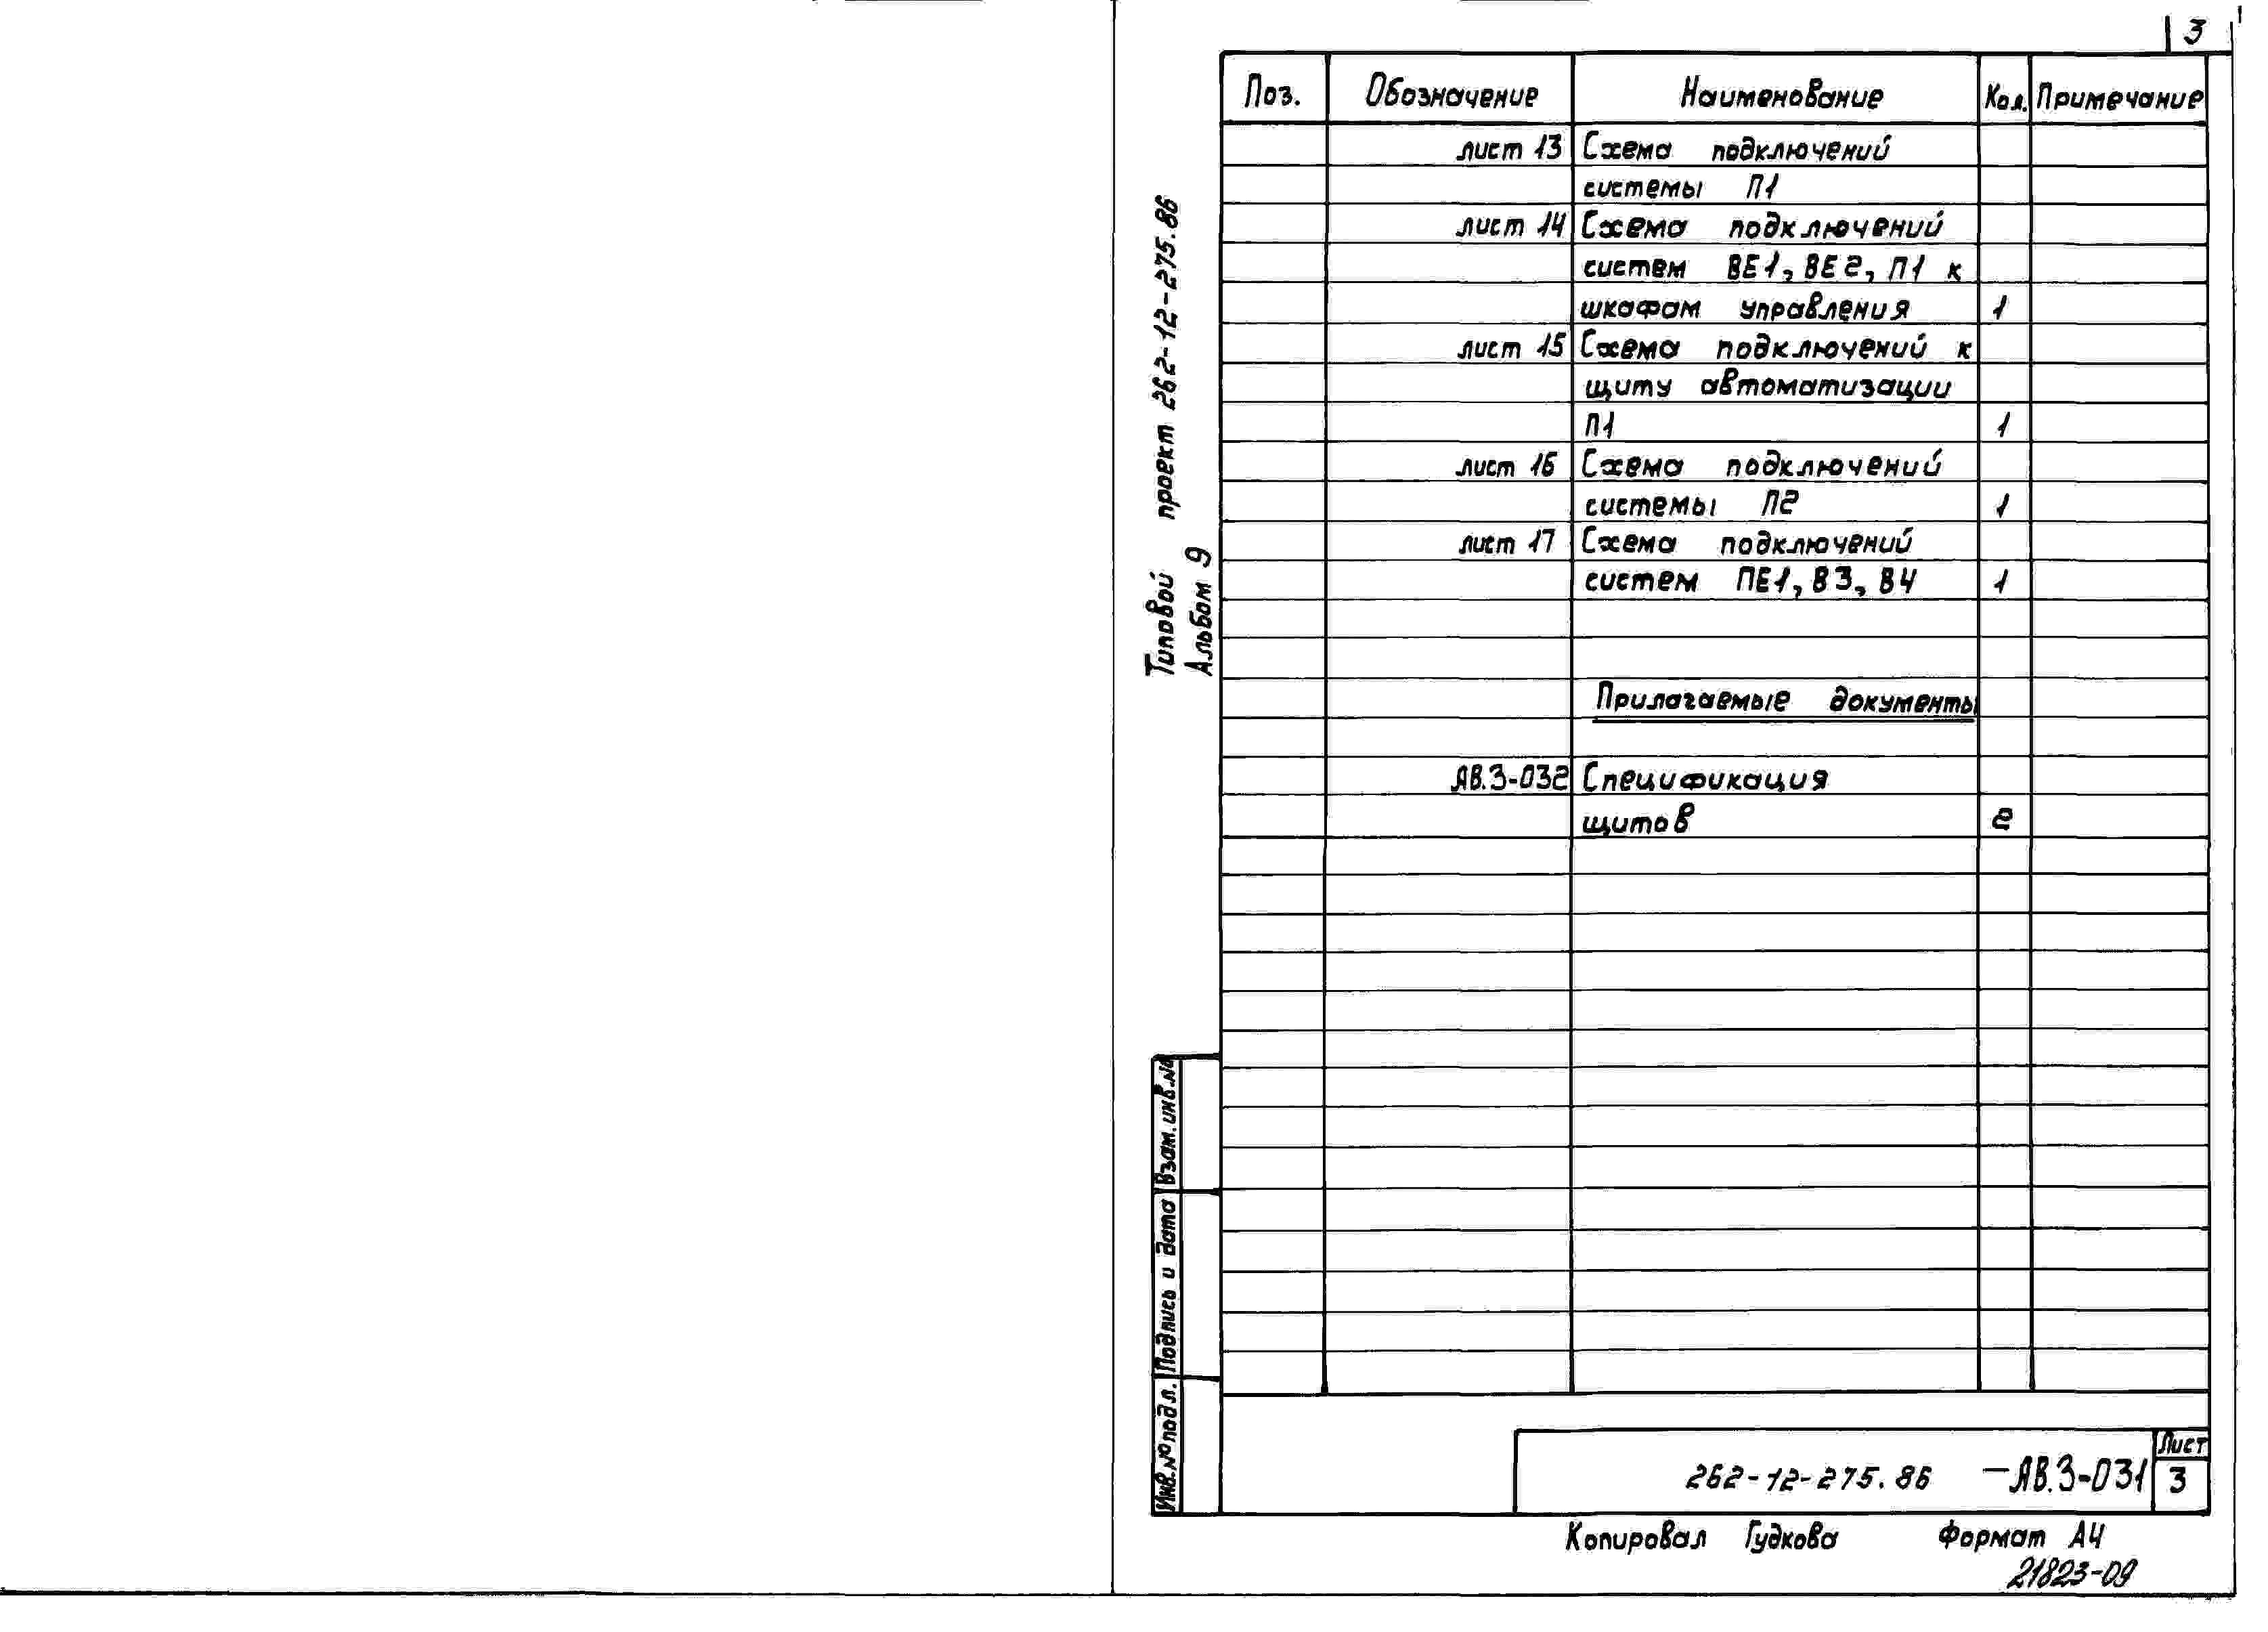 3
Поз. Обозначение Наименование Кол. Примечание
лист 13 Схема подключений
системы П1
лист 14 Схема подключений
систем ВЕ1, ВЕ2, П1 к
шкафам управления 1
лист 15 Схема подключений к
щиту автоматизации
П1 1
лист 16 Схема подключений
системы П2 1
лист 17 Схема подключений
систем ПЕ1, В3, В4 1
Прилагаемые документы
АВ.3-032 Спецификация
щитов 2
Типовой проект 262-12-275.86
Альбом 9
Взам. инв. №
Подпись и дата
Инв. № подл.
262-12-275.86 -АВ.3-031
Лист
3
Копировал Гудкова Формат А4
21823-09